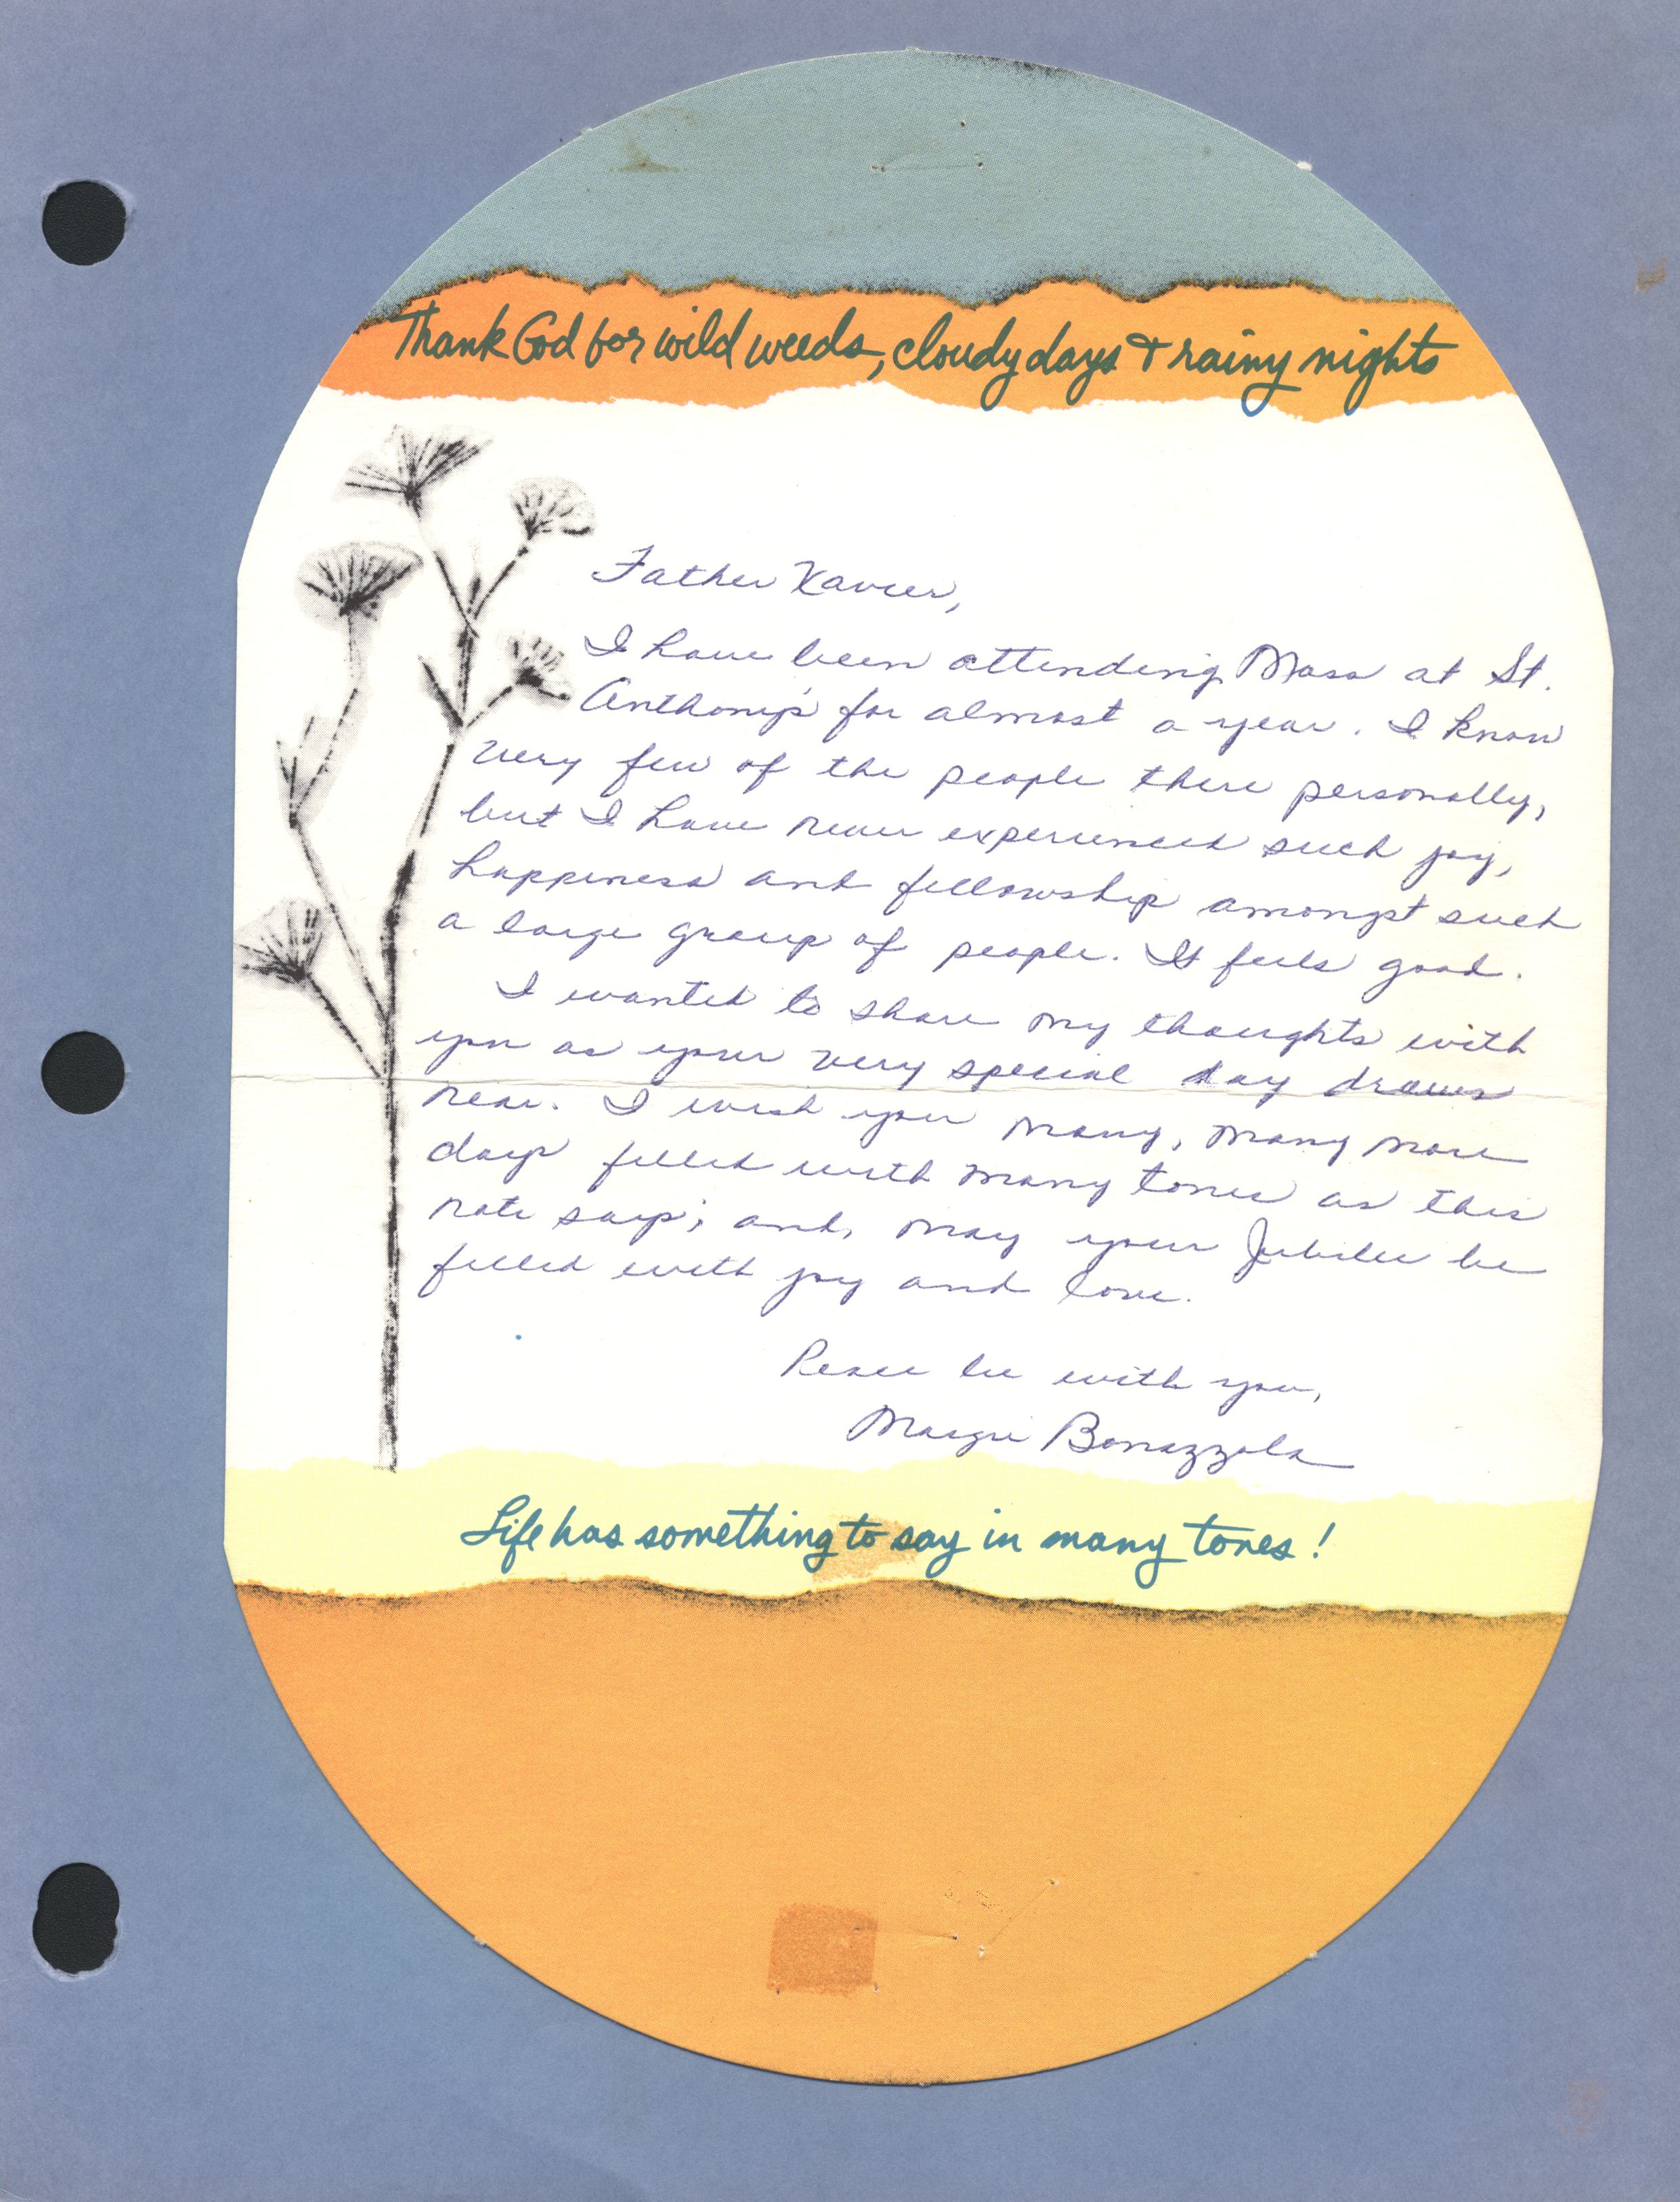 Thank God for wild weeds, cloudy days & rainy nights
Father Xavier,
I have been attending Mass at St.
Anthony's for almost a year. I know
very few of the people there personally,
but I have never experienced such joy,
happiness and fellowship amongst such
a large group of people. It feels good.
I wanted to share my thoughts with
you as your very special day draws
near. I wish you many, many more
days filled with many tones as this
note says; and, may your Jubilee be
filled with joy and love.
Peace be with you,
Margie Bonazzola
Life has something to say in many tones!